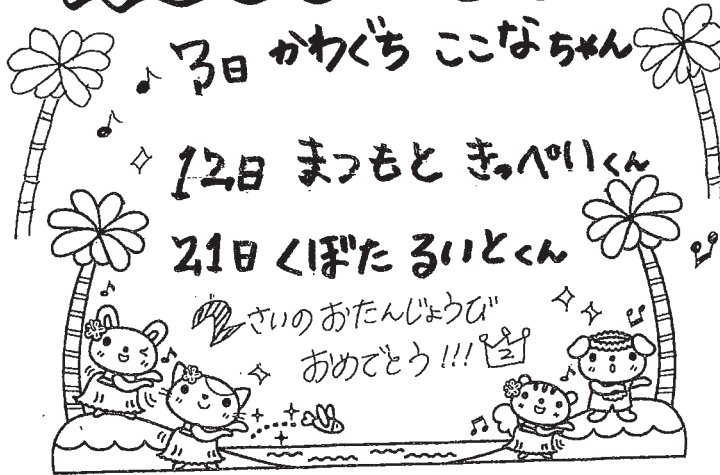 3日 かわぐち ここなちゃん
12日 まつもと きっぺいくん
21日 くぼた るいとくん
2さいの おたんじょうび
おめでとう!!! 2